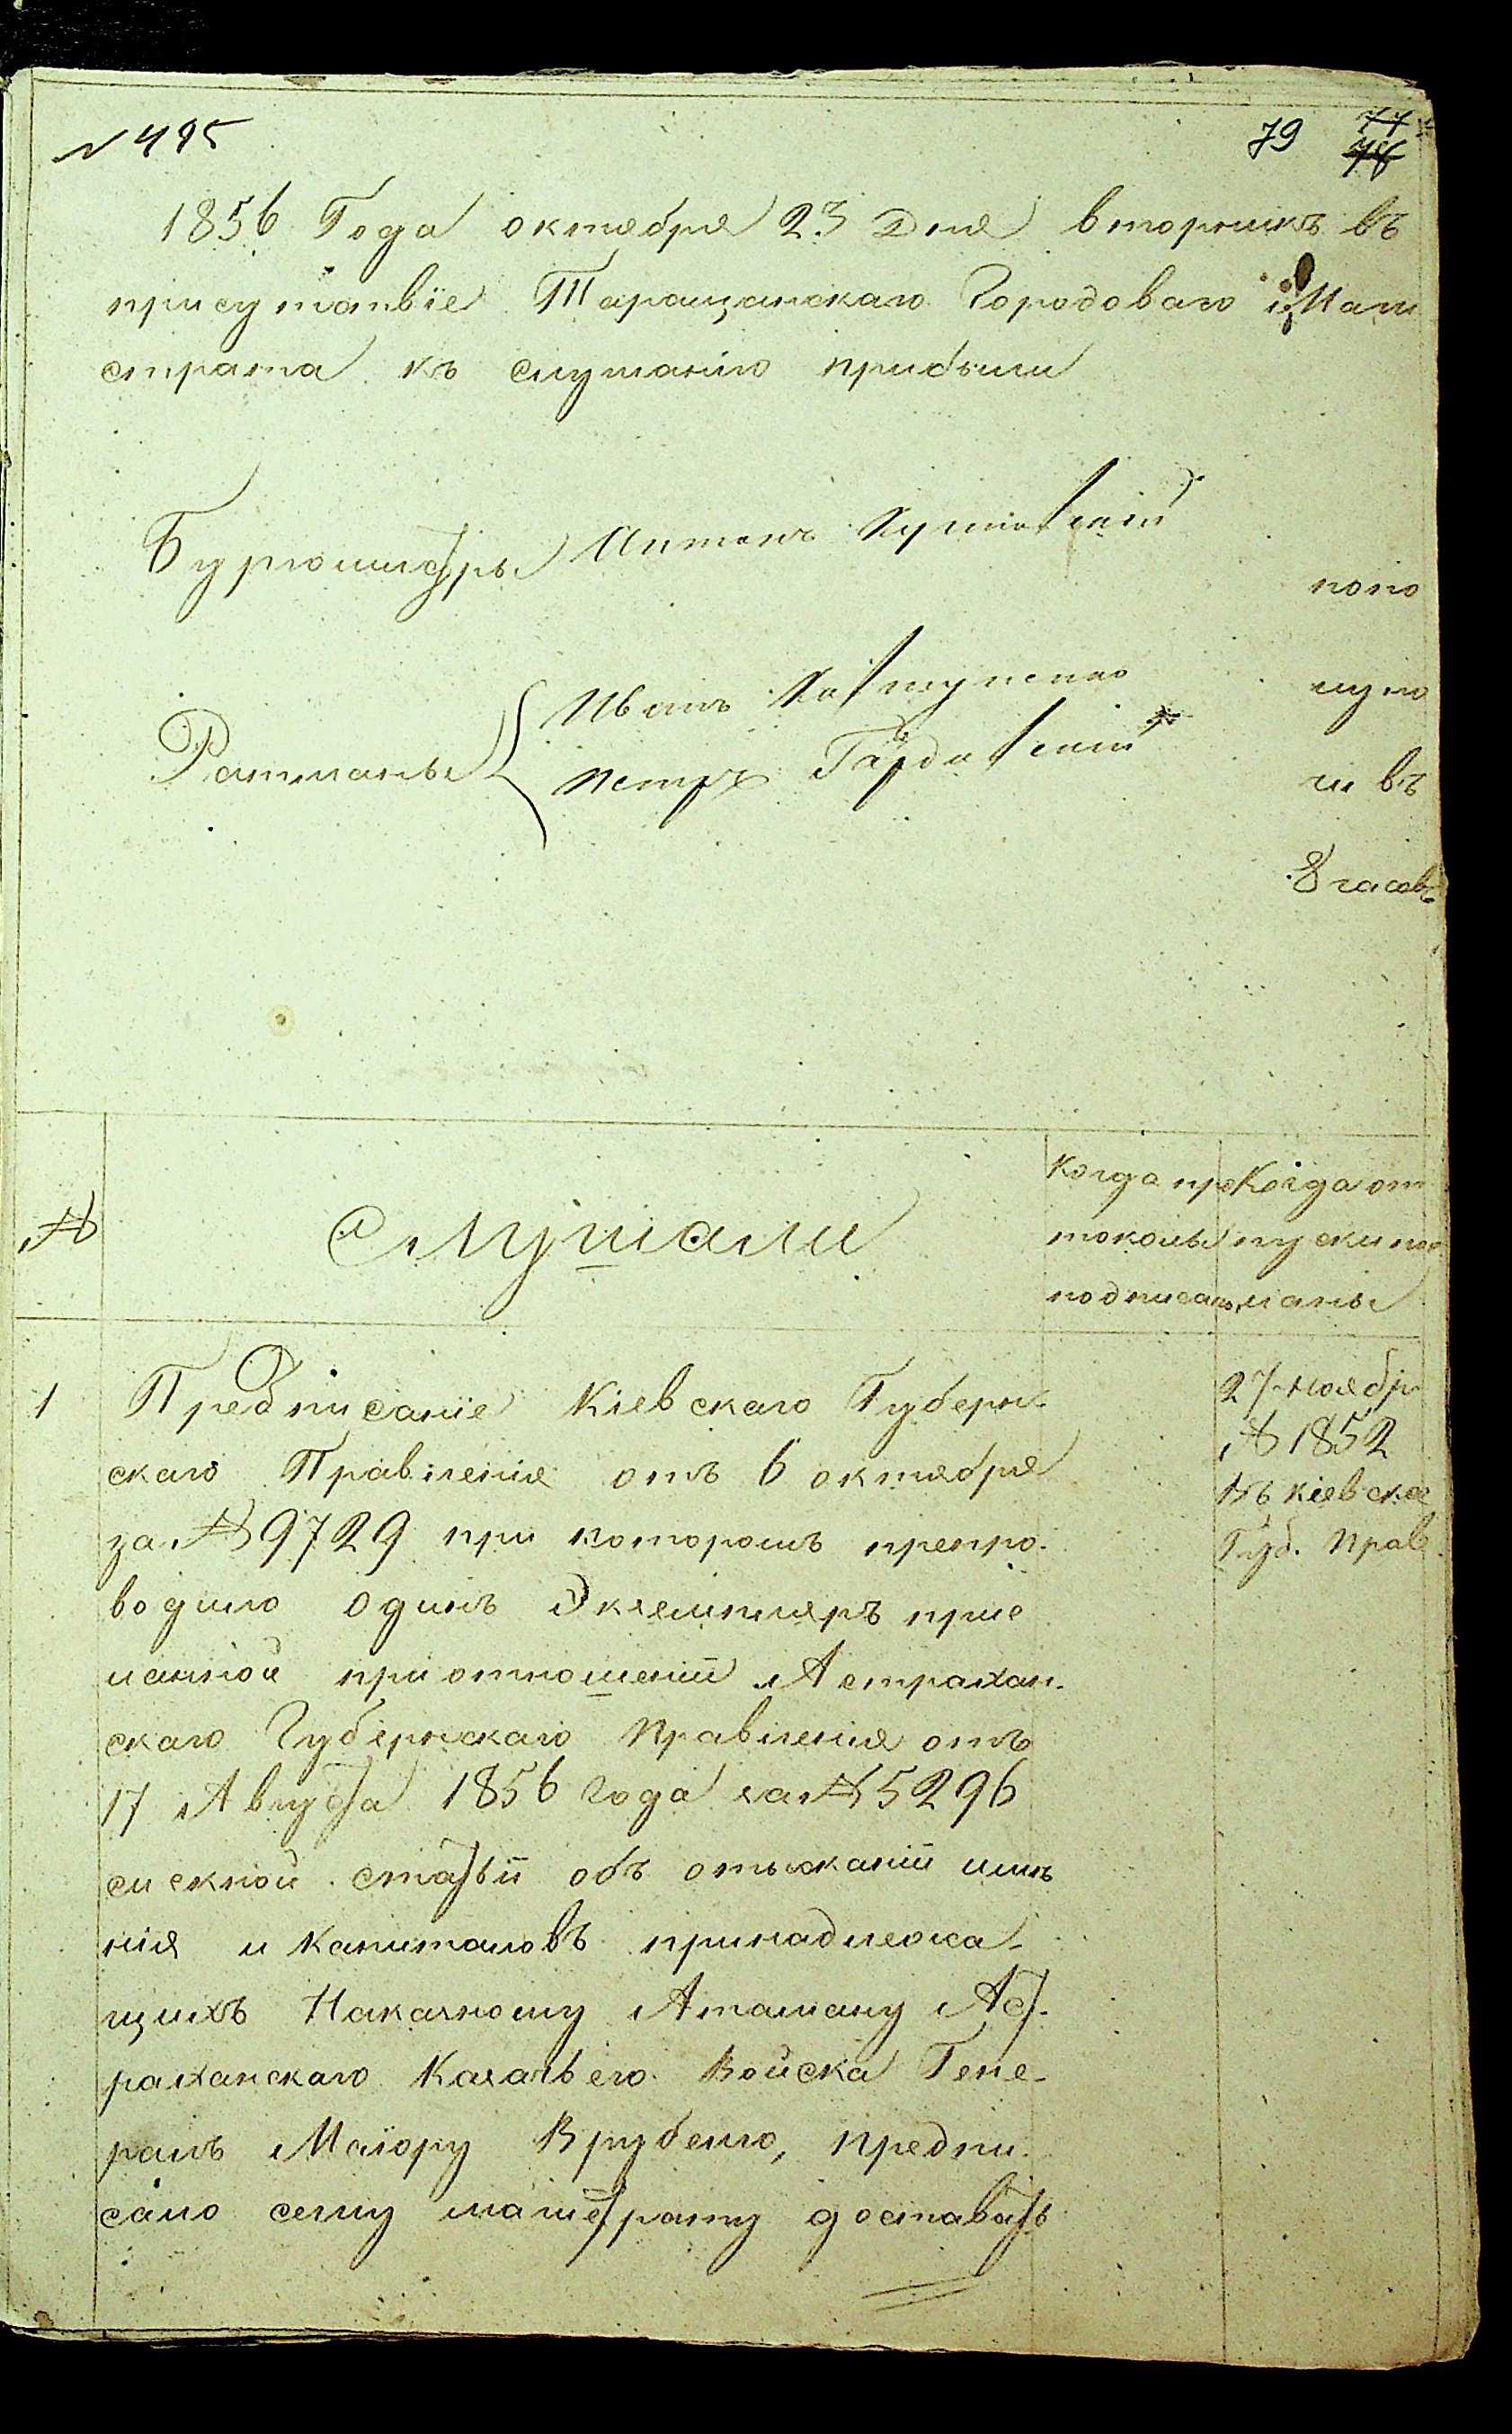 № 495
79 77
78
1856 Года октября 23 Дня вторникъ въ
присутствіе Таращанскаго Городоваго Маги
страта къ слушанію прибыли
Бургомистръ Антонъ
попо
Ратманы Иванъ Ковтуненко
лудно
Петръ Гардовскій
чи въ
8 часовъ
№ Слушали
Когда про
токолы
подписаны
Когда от
пуски пос
ланы
1 Предписаніе Кіевскаго Губерн-
скаго Правленія отъ 6 октября
за № 9729 при которомъ препро-
водило одинъ Экземпляръ прис
ланной при отношеніи Астрахан-
скаго Губернскаго Правленія отъ
17 Августа 1856 года за № 5296
сыскной статьи объ отысканіи имѣ
нія и капиталовъ принадлежа-
щихъ Наказному Атаману Аст-
раханскаго Казачьего Войска Гене-
ралъ Маіору Врубелю, предпи-
сало сему магистрату доставать
27 ноября
№ 1852
Въ кіевское
Губ. Прав